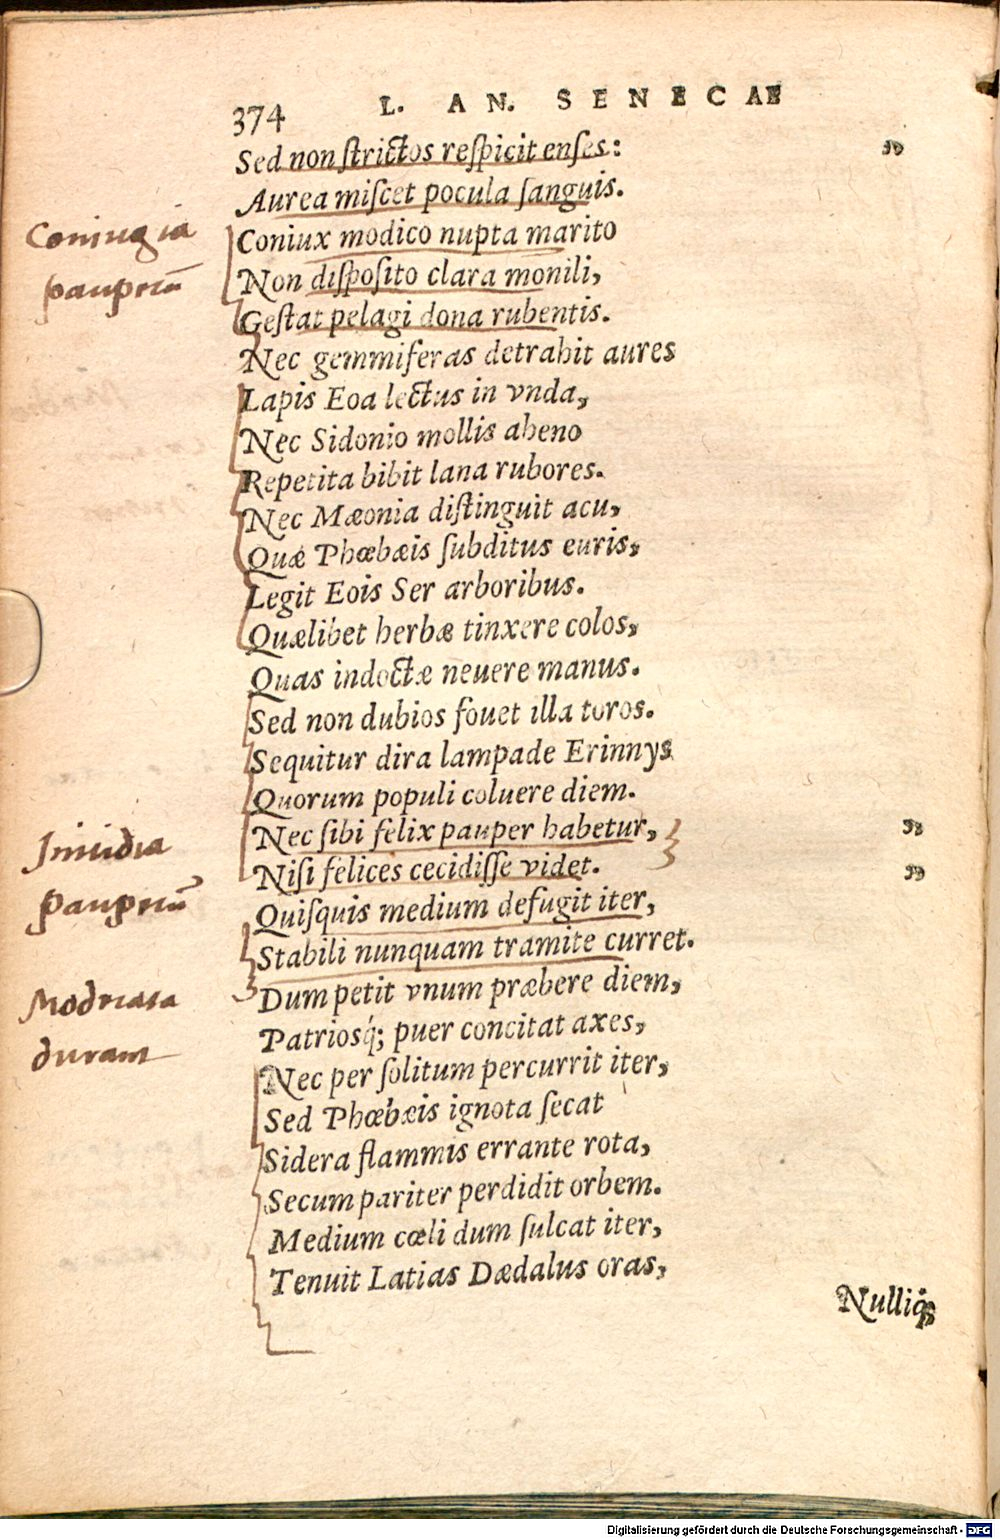 374 L. AN. SENECAE
Sed non ſtrictos reſpicit enſes: "
Aurea miſcet pocula ſanguis.
Coniux modico nupta marito
Coniugia
pauperũ
Non diſpoſito clara monili,
Geſtat pelagi dona rubentis.
Nec gemmiferas detrahit aures
Lapis Eoa lectus in vnda,
Nec Sidonio mollis aheno
Repetita bibit lana rubores.
Nec Mæonia diſtinguit acu,
Quæ Phœbæis ſubditus euris,
Legit Eois Ser arboribus.
Quælibet herbæ tinxere colos,
Quas indoctæ neuere manus.
Sed non dubios fouet illa toros.
Sequitur dira lampade Erinnys
Quorum populi coluere diem.
Nec ſibi felix pauper habetur, "
Inuidia
pauperũ
Niſi felices cecidiſſe videt. "
Quiſquis medium defugit iter,
Stabili nunquam tramite curret.
Dum petit vnum præbere diem,
Moderata
durant
Patriosq́; puer concitat axes,
Nec per ſolitum percurrit iter,
Sed Phœbæis ignota ſecat
Sidera flammis errante rota,
Secum pariter perdidit orbem.
Medium cœli dum ſulcat iter,
Tenuit Latias Dædalus oras,
Nulliq́;
Digitalisierung gefördert durch die Deutsche Forschungsgemeinschaft - DFG